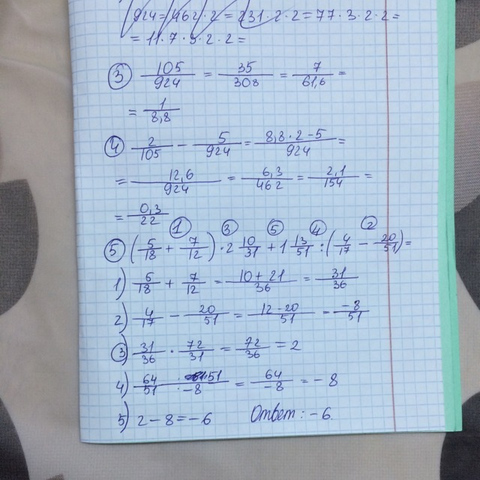 924 = 462 · 2 = 231 · 2 · 2 = 77 · 3 · 2 · 2 =
= 11 · 7 · 3 · 2 · 2 =
③ 105/924 = 35/308 = 7/61,6 =
= 1/8,8
④ 2/105 - 5/924 = 8,8 · 2 - 5/924 =
= 12,6/924 = 6,3/462 = 2,1/154 =
= 0,3/22
① ③ ⑤ ④ ②
⑤ (5/18 + 7/12) · 2 10/31 + 1 13/51 : (4/17 - 20/51) =
1) 5/18 + 7/12 = 10 + 21/36 = 31/36
2) 4/17 - 20/51 = 12 - 20/51 = -8/51
③ 31/36 · 72/31 = 72/36 = 2
4) 64/51 · 51/-8 = 64/-8 = -8
5) 2 - 8 = -6 Ответ: -6.